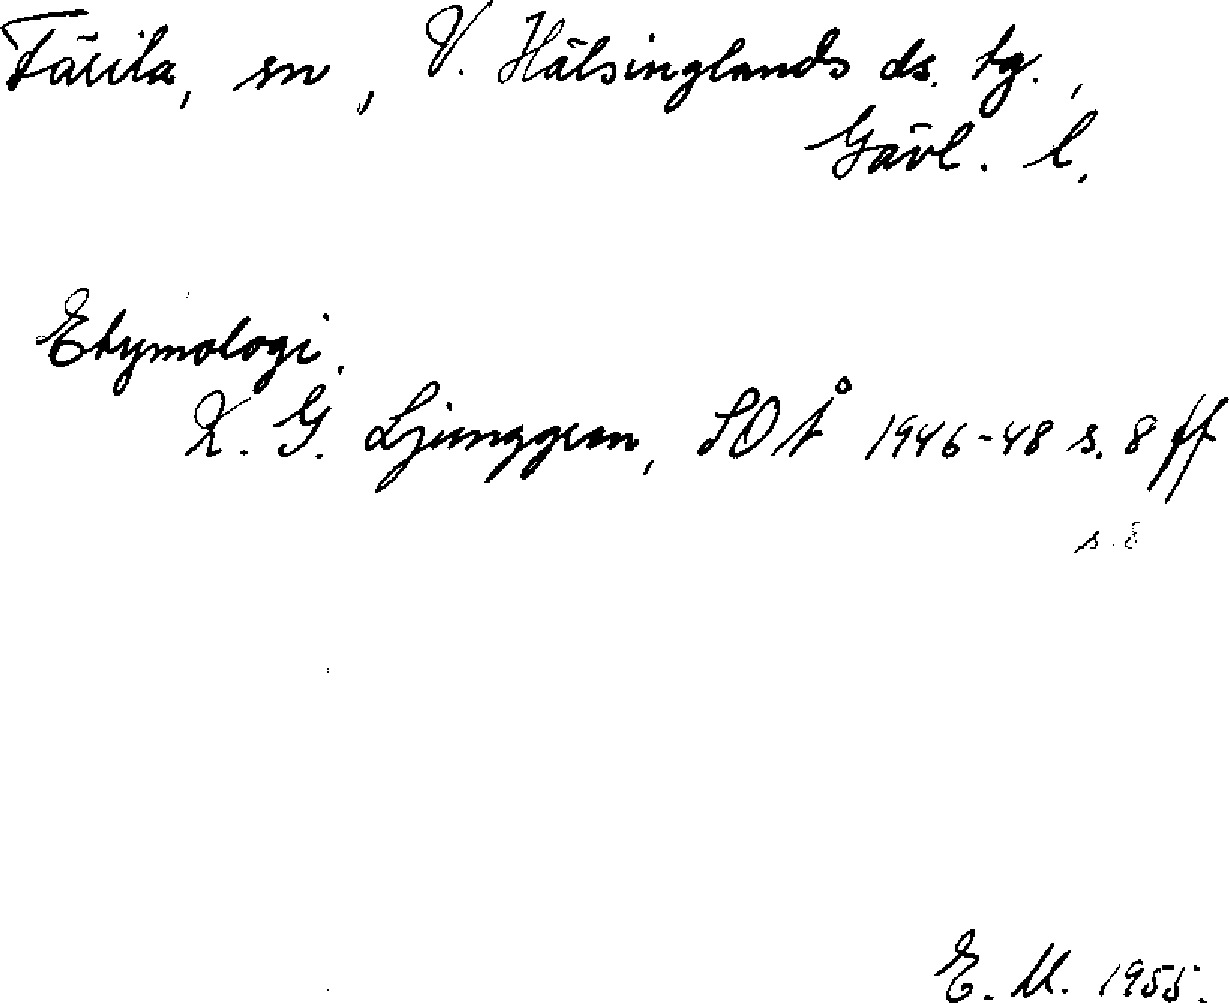 Färila, sn, V. Hälsinglands ds. tg.,
Gävl. l.
Etymologi.
K. G. Ljunggren, SOÅ 1946-48 s. 8 ff
s. 8
E. M. 1955.